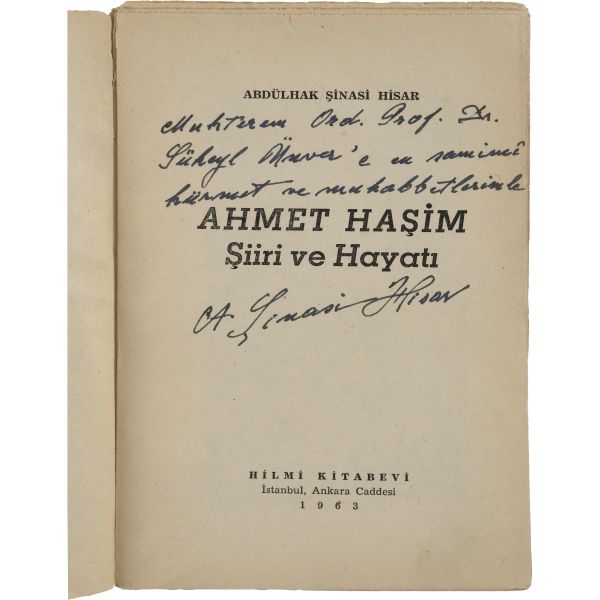 ABDÜLHAK ŞİNASİ HİSAR
Muhterem Ord. Prof. Dr.
Süheyl Ünver'e en samimî
hürmet ve muhabbetlerimle
AHMET HAŞİM
Şiiri ve Hayatı
A. Şinasi Hisar
HİLMİ KİTABEVİ
İstanbul, Ankara Caddesi
1963